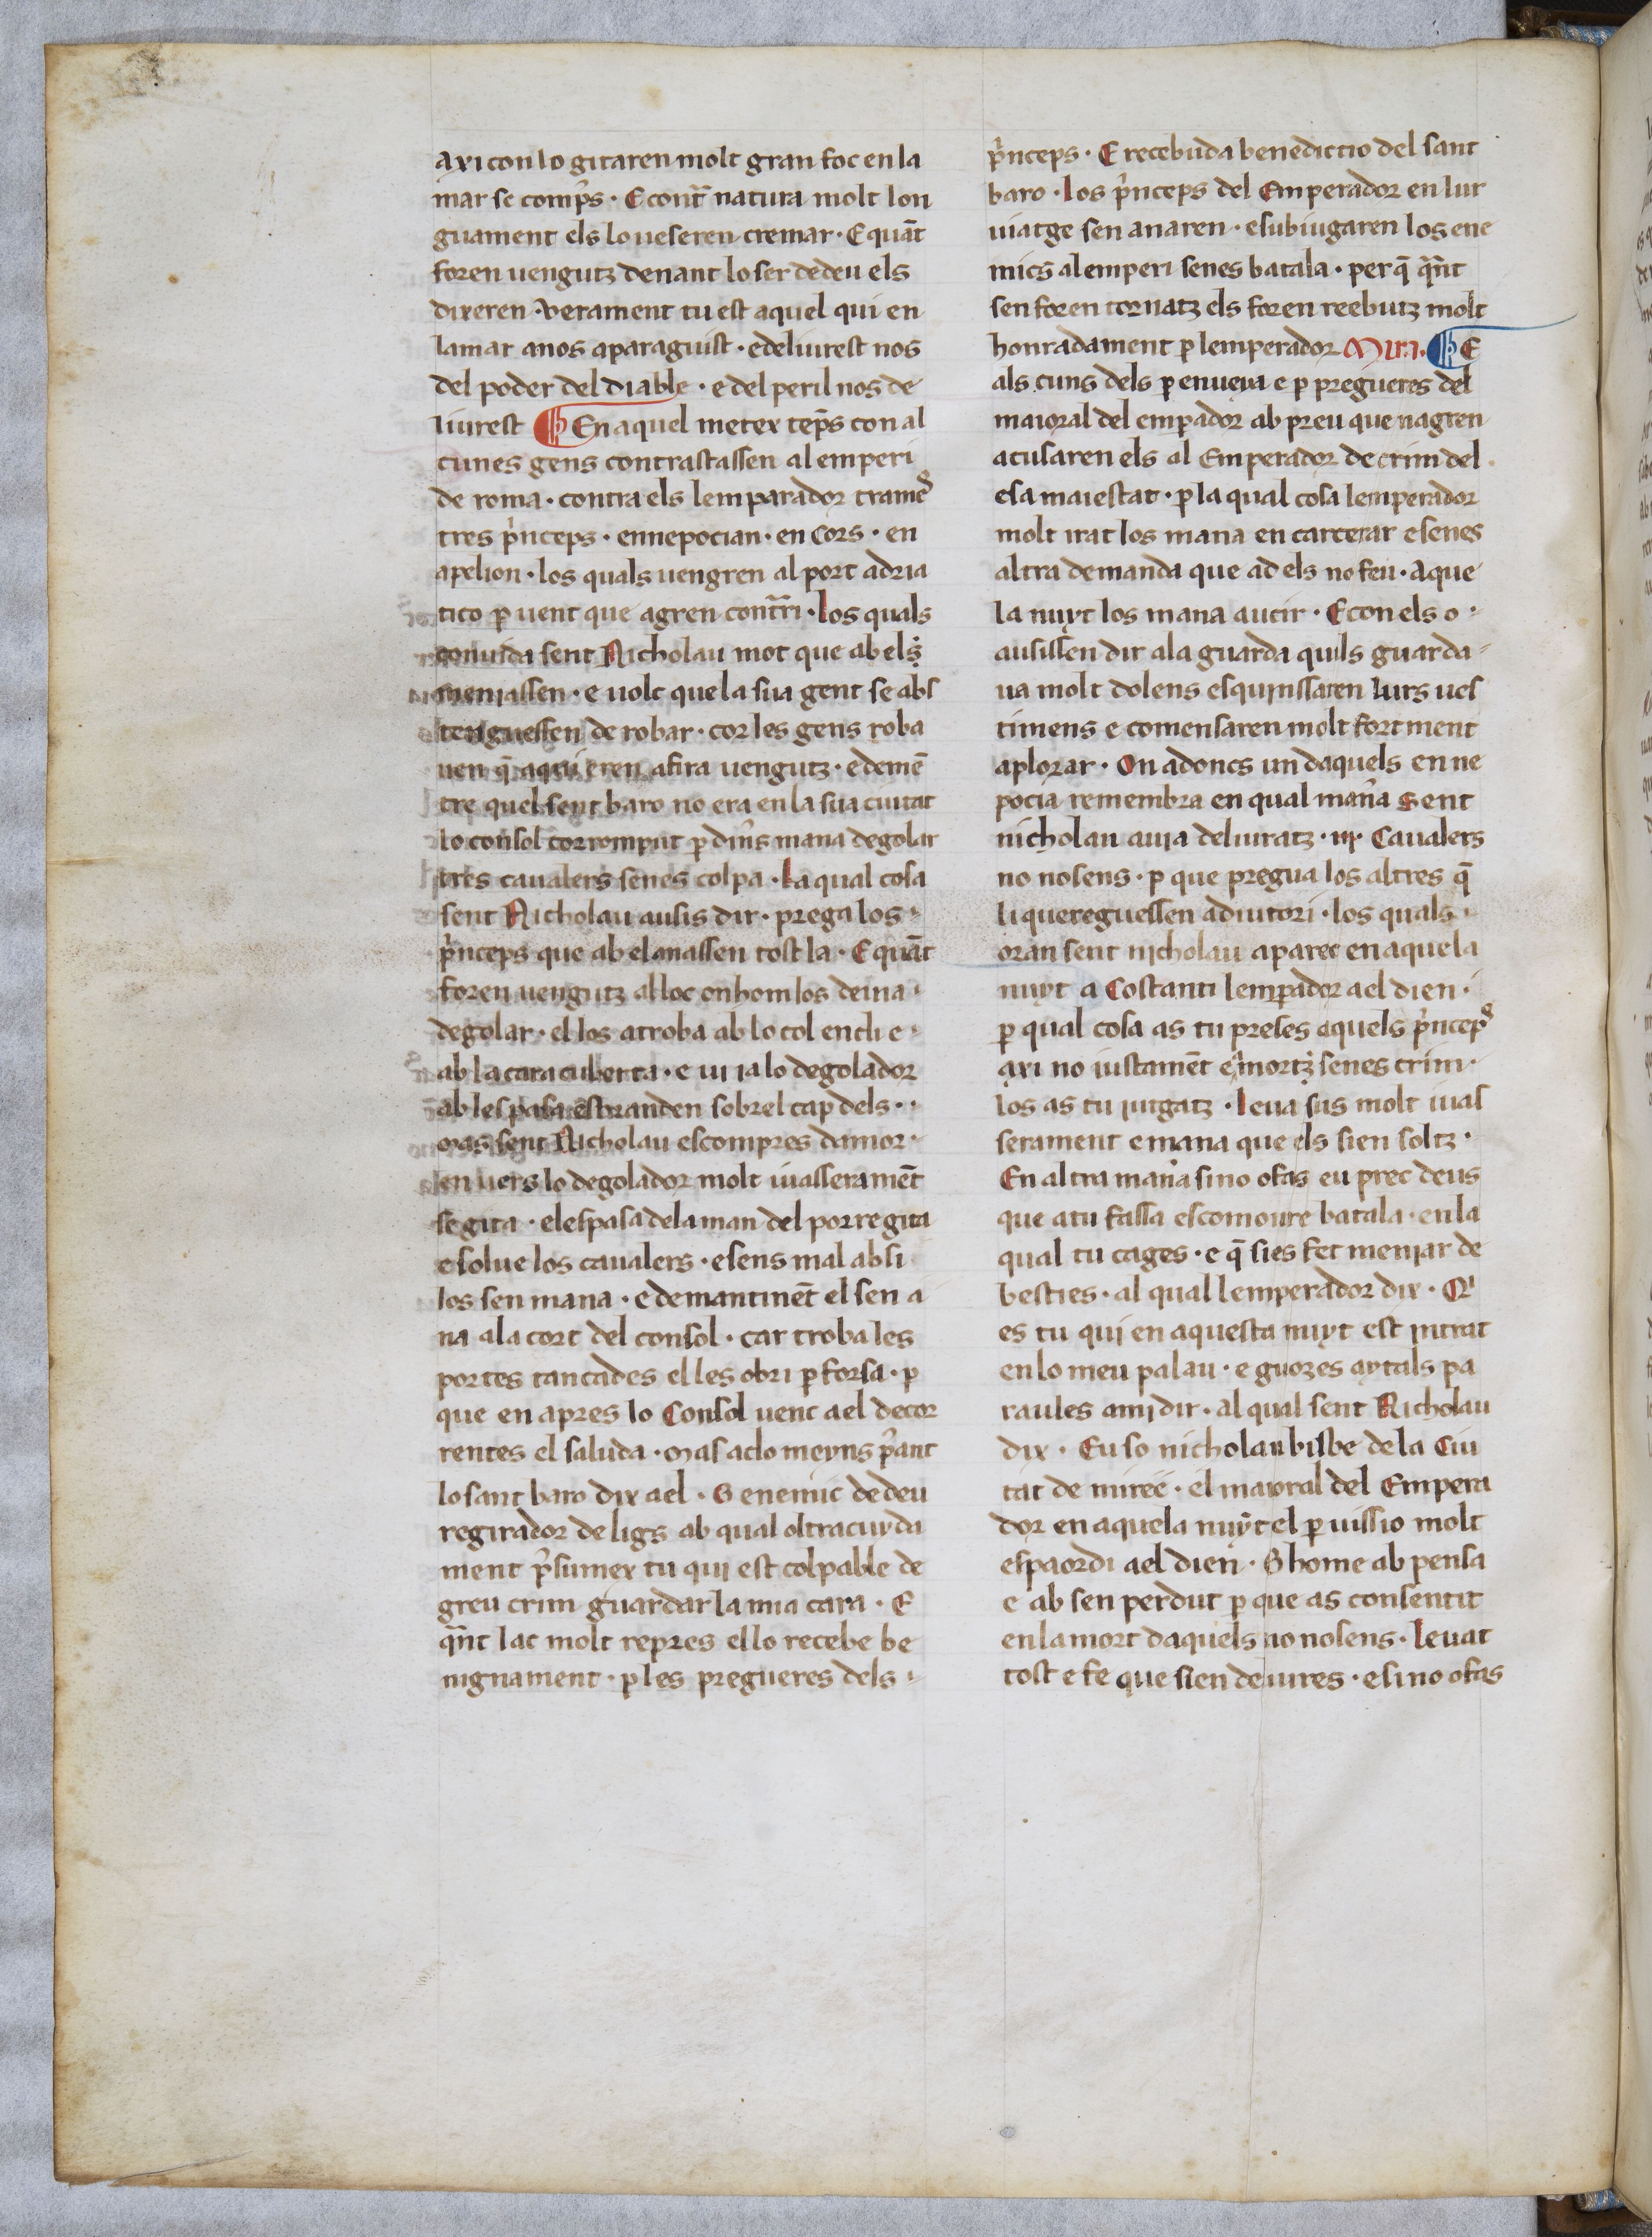 axi con lo gitaren molt gran foc en la
mar se comp̃s · E cont̃ natura molt lon
guament els lo ueseren cremar · E quãt
foren uengutz denant lo ser de deu els
dixeren · verament tu est aquel qui en
la mar a nos aparaguist · e deliurest nos
del poder del diable · e del peril nos de
liurest ¶ En aquel metex tẽps con al
cunes gens contrastassen al emperi
de roma · contra els lemparador trames
tres p̃nceps · en nepocian · en Cors · en
apelion · los quals uengren al port adria
tico ꝑ uent que agren cont̃ri · los quals
conuida sent Nicholau mot que ab els
meniassen · e uolt que la sua gent se abs
tenguessen de robar · cor les gens roba
uen q̃ aqui eren a fira uengutz · e demẽ
tre quel sent baro no era en la sua ciutat
lo consol corromput ꝑ din̾s mana degolar
tres caualers senes colpa · La qual cosa
sent Nicholau ausis dir · prega los
p̃nceps que ab el anassen tost la · E quãt
foren uengutz al loc on hom los deuia
degolar · el los atroba ab lo col encli e
ab la cara cuberta · e uiia lo degolador
ab lespasa esbranden sobrel cap dels ·
mas sent Nicholau escompres damor ·
en uers lo degolador molt iuasseramẽt
se gita · e lespasa de la man del por regita
e solue los caualers · e sens mal ab si
los sen mana · e demantinẽt el sen a
na a la cort del consol · car troba les
portes tancades el les obri ꝑ forsa · ꝑ
que en apres lo Consol uenc a el decor
rentes el saluda · mas aclo meyns p̃ant
lo sant baro dix a el · O enemic de deu
regirador de ligs ab qual oltracuyda
ment p̃sumex tu qui est colpable de
greu crim guardar la mia cara · E
q̃nt lac molt repres el lo recebe be
nignament · ꝑ les pregueres dels
p̃nceps · E recebuda benedictio del sant
baro · los p̃nceps del Emperador en lur
uiatge sen anaren · e subiugaren los ene
mics al emperi senes batala · per q̃ q̃nt
sen foren tornatz els foren reebutz molt
honradament ꝑ lemperador ¶ E
als cuns dels ꝑ enueya e ꝑ pregueres del
maioral del emꝑador ab preu que nagren
acusaren els al Emperador de crim del
esa maiestat · ꝑ la qual cosa lemperador
molt irat los mana encarcerar e senes
altra demanda que ad els no feu · Aque
la nuyt los mana aucir · E con els o
ausissen dir a la guarda quils guarda
ua molt dolens esquinssaren lurs ues
timens e comensaren molt fortment
a plorar · On adoncs un daquels en ne
pocia remembra en qual man̾a sent
nicholau auia deliuratz · iij · Caualers
no nosens · ꝑ que pregua los altres q̃
li quereguessen adiutori · los quals
oran sent nicholau aparec en aquela
nuyt a Costanti lemꝑador a el dien ·
ꝑ qual cosa as tu preses aquels p̃nceps
axi no iustamẽt e a mortz senes crim ·
los as tu iutgatz · leua sus molt iuas
serament e mana que els sien soltz ·
En altra man̾a si no o fas eu prec deus
que a tu fassa escomoure batala · en la
qual tu cages · e q̃ sies fet meniar de
besties · al qual lemperador dix · Q
es tu qui en aquesta nuyt est intrat
en lo meu palau · e guozes aytals pa
raules a mi dir · al qual sent Nicholau
dix · Eu so nicholau bisbe de la Ciu
tat de miree · el maioral del Empera
dor en aquela nuyt el ꝑ uissio molt
espaordi a el dien · O home ab pensa
e ab sen perdut ꝑ que as consentit
en la mort daquels no nosens · leuat
tost e fe que sien deiures · e si no o fas